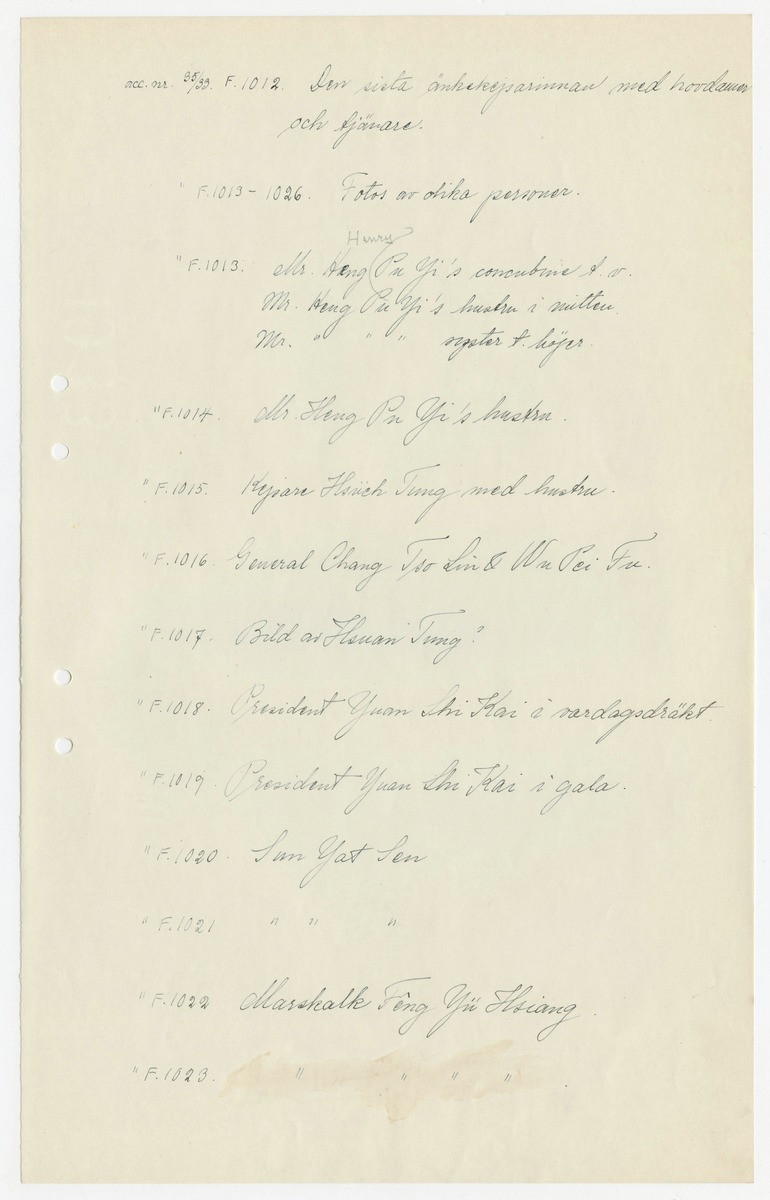 acc. nr. 35/33. F. 1012. Den sista änkekejsarinnan med hovdamer
och tjänare.
" F. 1013 - 1026. Fotos av olika personer.
Henry
" F. 1013. Mr. Heng Pu Yi's concubine t. v.
Mr. Heng Pu Yi's hustru i mitten.
Mr. " " " syster t. höger.
" F. 1014. Mr. Heng Pu Yi's hustru.
" F. 1015. Kejsare Hsüeh Tung med hustru.
" F. 1016. General Chang Tso Lin & Wu Pei Fu.
" F. 1017. Bild av Hsuan Tung?
" F. 1018. President Yuan Shi Kai i vardagsdräkt.
" F. 1019. President Yuan Shi Kai i gala.
" F. 1020. Sun Yat Sen
" F. 1021 " " "
" F. 1022 Marskalk Fêng Yü Hsiang.
" F. 1023. " " " " .